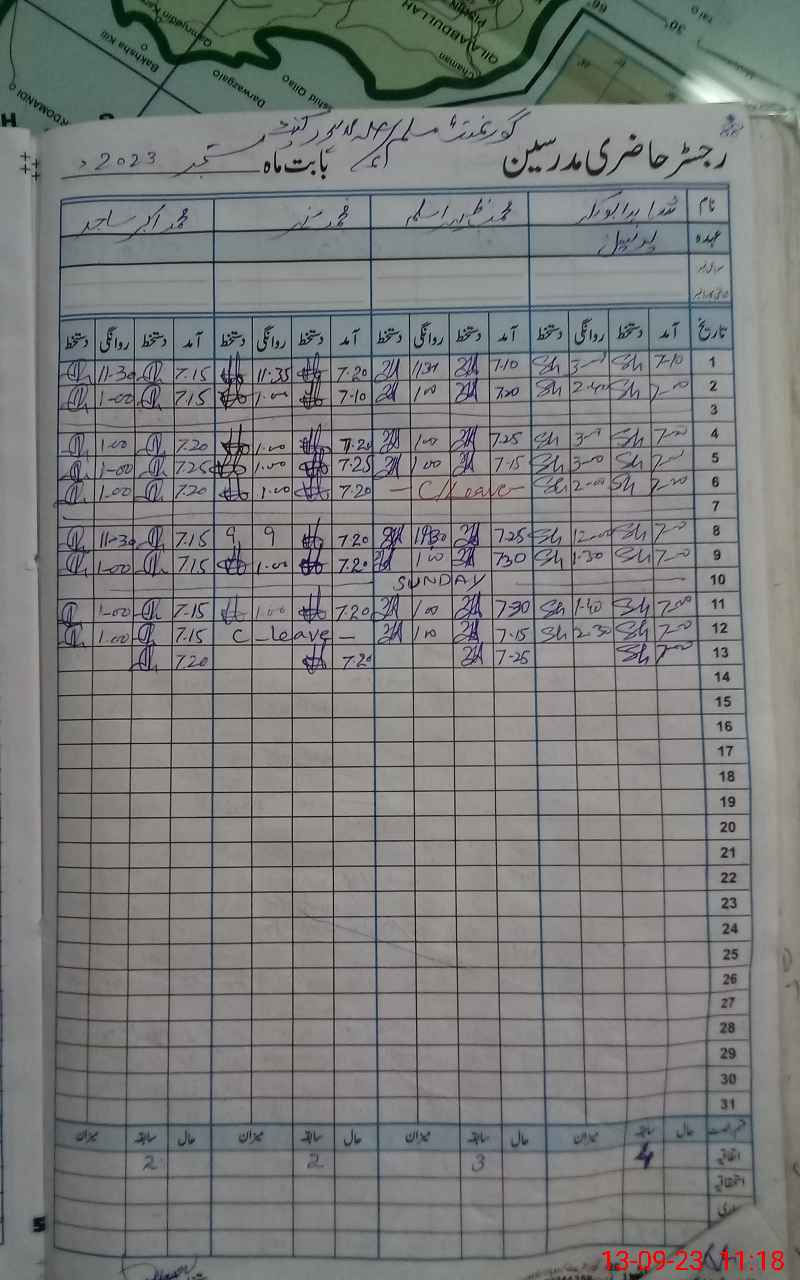 QILA ABDULLAH
Chaman
Qamruddin Karez
Bakhsha Kili
Darwazgai
66
30
رجسٹر حاضری مدرسین گورنمنٹ مسلم
بابت ماہ ستمبر 2023ء
نام محمد اسلم محمد منیر محمد اکبر ساجد
عہدہ پرنسپل
تاریخ آمد دستخط روانگی دستخط آمد دستخط روانگی دستخط آمد دستخط روانگی دستخط آمد دستخط روانگی دستخط
1 7-10 Sh 3-00 Sh 7-10 1130 7.20 11.35 7.15 11-30
2 7-00 Sh 2-40 Sh 7.20 1.00 7-10 1.00 7.15 1-00
3
4 7-00 Sh 3-00 Sh 7.25 1.00 7.20 1.00 7.20 1.00
5 7-00 Sh 3-00 Sh 7-15 1.00 7.25 1.00 7.25 1-00
6 7-00 Sh 2-00 Sh - C/Leave - 7.20 1.00 7.20 1.00
7
8 7-00 Sh 12-00 Sh 7.25 1130 7.20 9 9 7.15 11-30
9 7-00 Sh 1-30 Sh 7.30 1.00 7.20 1.00 7.15 1-00
10 SUNDAY
11 7-00 Sh 1-40 Sh 7-30 1.00 7.20 1.00 7.15 1-00
12 7-00 Sh 2-30 Sh 7-15 1.00 C-leave- 7.15 1.00
13 7-00 Sh 7-25 7.20 7.20
14
15
16
17
18
19
20
21
22
23
24
25
26
27
28
29
30
31
حال سابقہ میزان حال سابقہ میزان حال سابقہ میزان حال سابقہ میزان
اتفاقیہ 4 3 2 2
استحقاقیہ
13-09-23 11:18